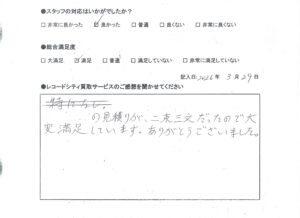 ●スタッフの対応はいかがでしたか？
□ 非常に良かった ☑ 良かった □ 普通 □ 良くない □ 非常に良くない
●総合満足度
□ 大満足 ☑ 満足 □ 普通 □ 満足していない □ 非常に満足していない
記入日:2026年 3月29日
●レコードシティ買取サービスのご感想を聞かせてください
特になし。
の見積りが、二束三文だったので大
変満足しています。ありがとうございました。